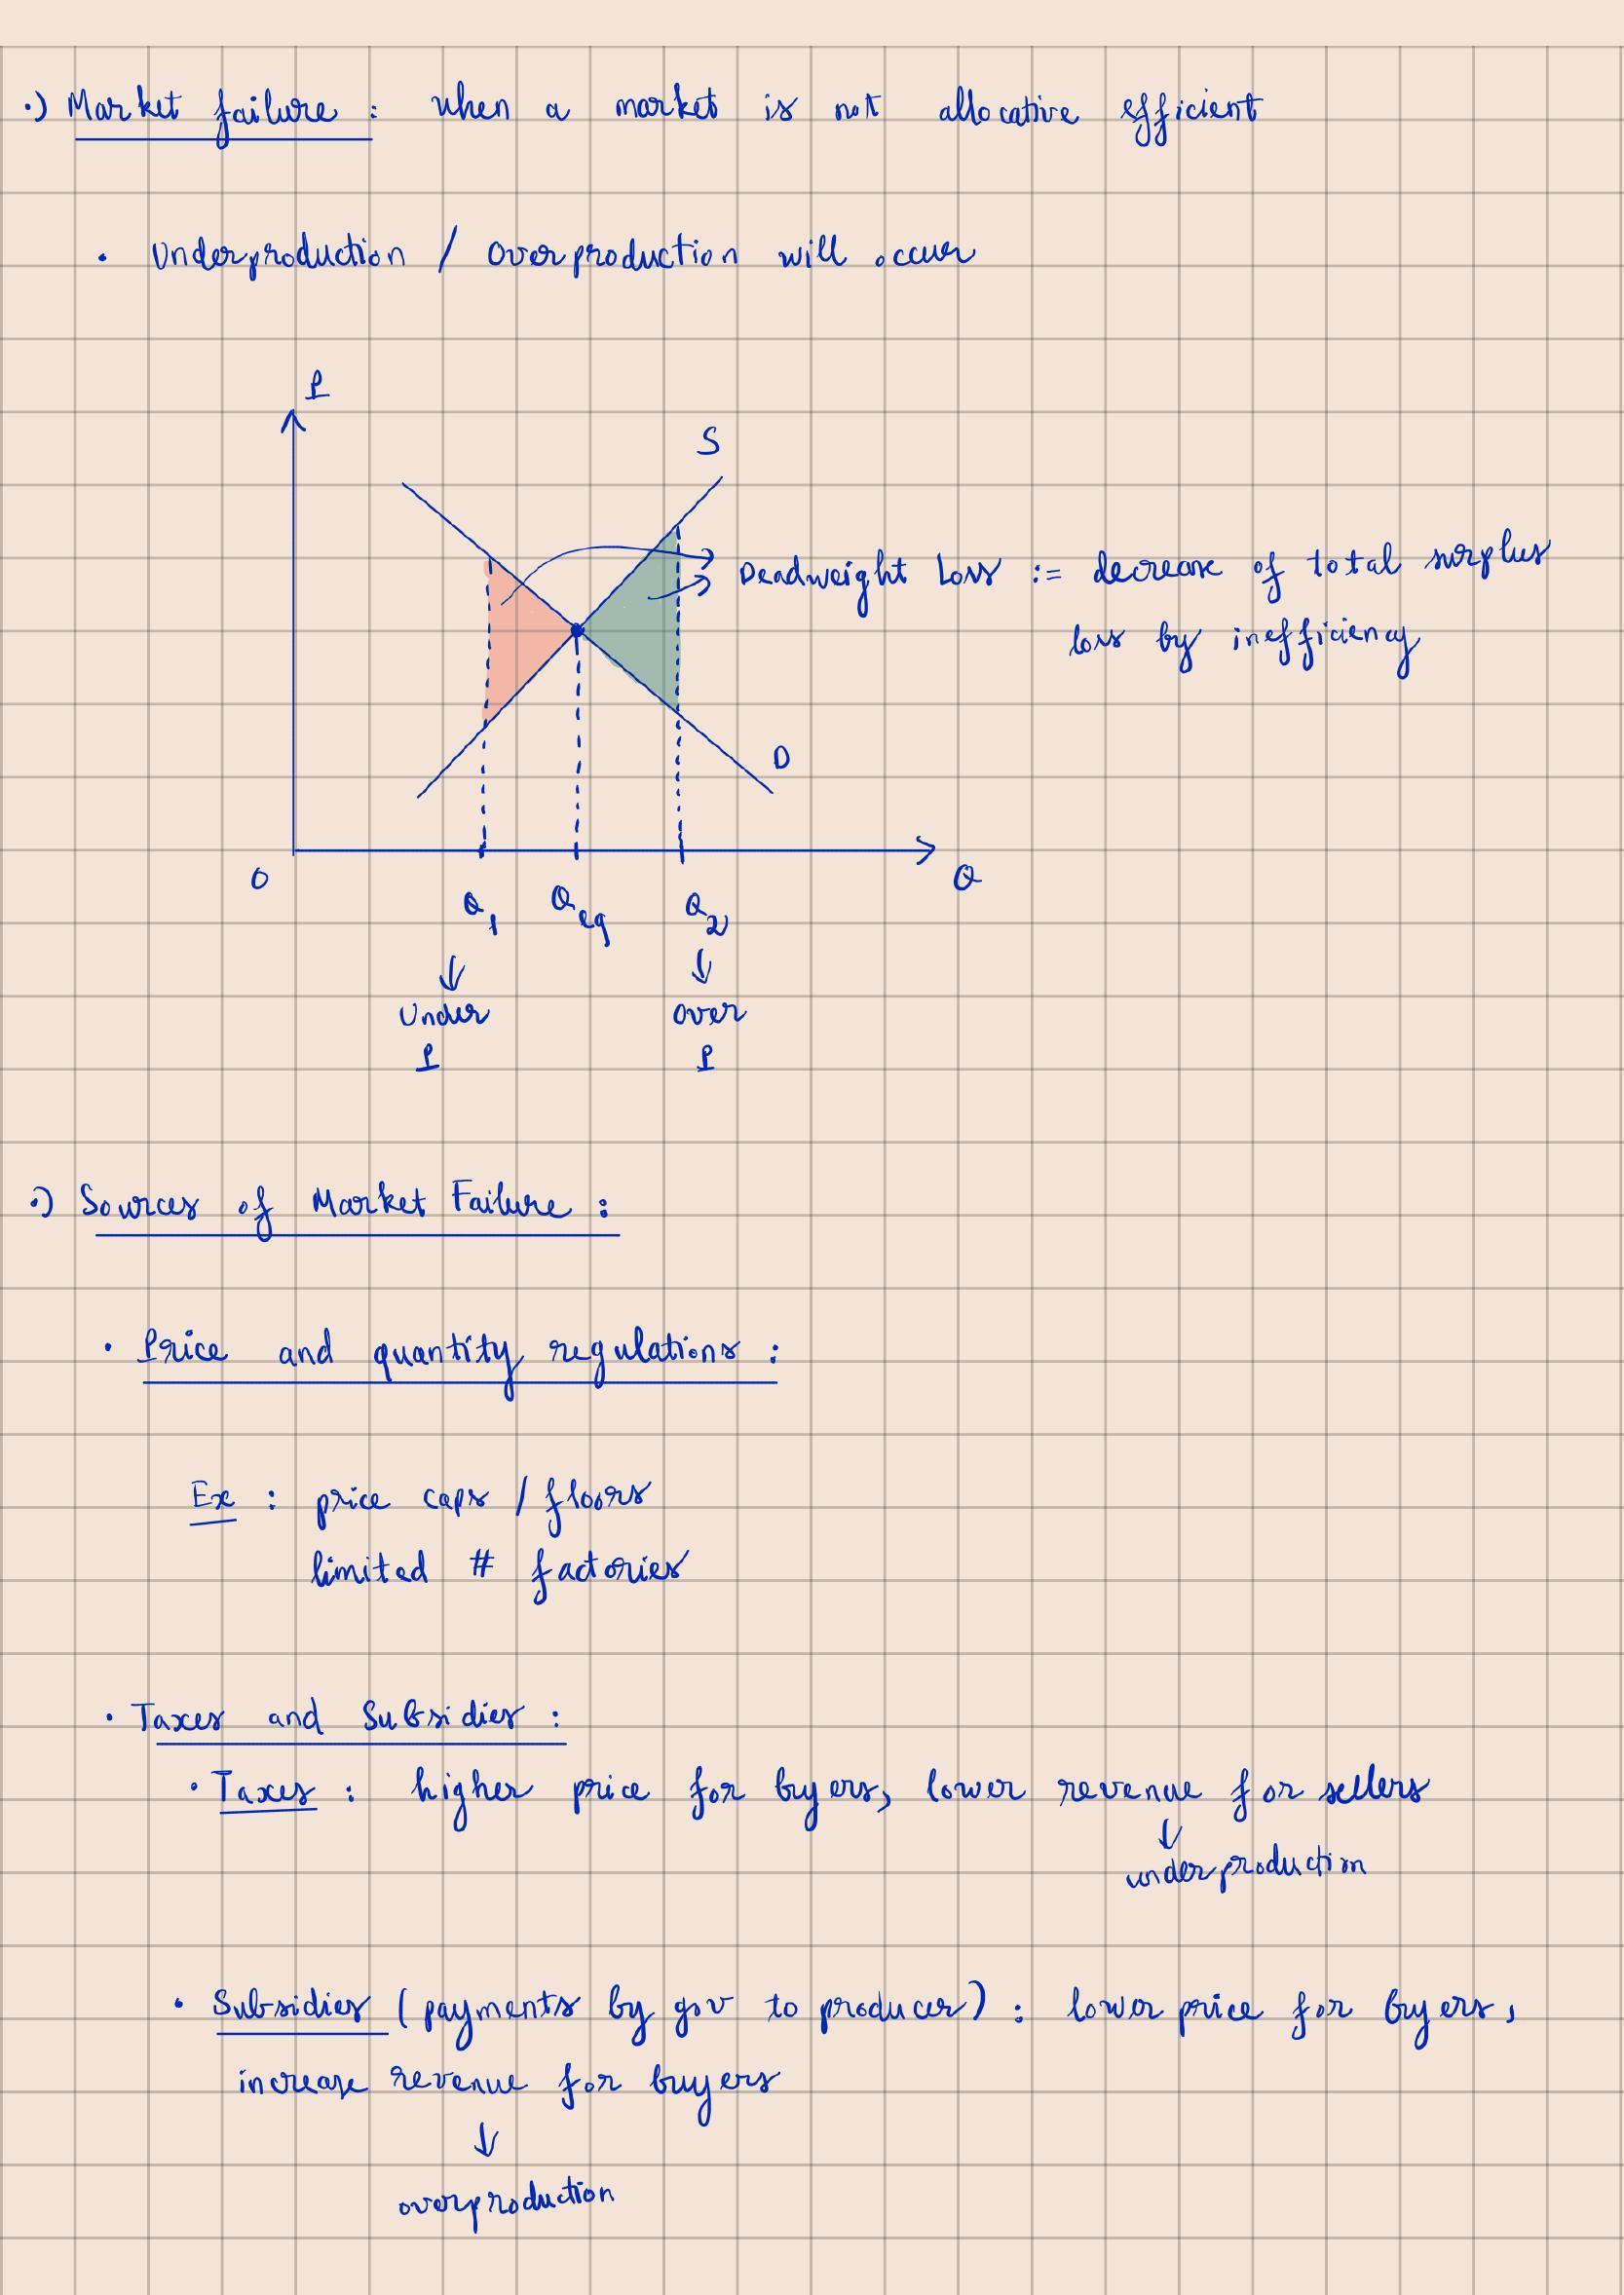 ·) Market failure : when a market is not allocative efficient
· Underproduction / Overproduction will occur
P
S
Deadweight Loss := decrease of total surplus
loss by inefficiency
D
O
Q
Q1 Qeq Q2
↓ ↓
Under Over
P P
·) Sources of Market Failure :
· Price and quantity regulations :
Ex : price caps / floors
limited # factories
· Taxes and Subsidies :
· Taxes : higher price for byers, lower revenue for sellers
↓
underproduction
· Subsidies (payments by gov to producer) : lower price for byers,
increase revenue for buyers
↓
overproduction